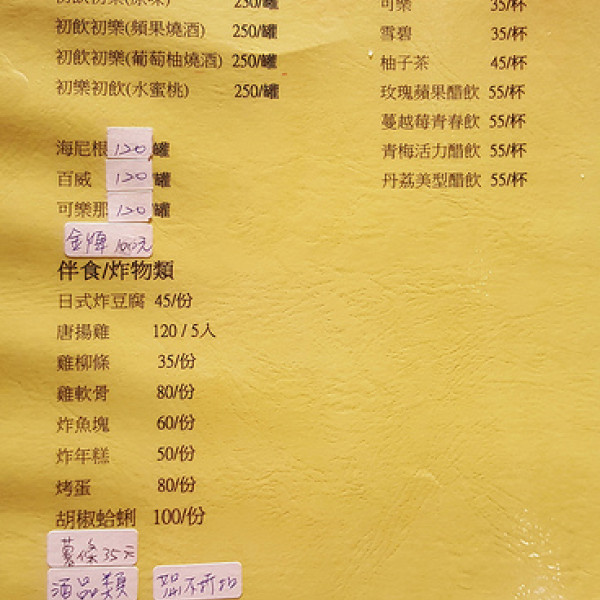 初飲初樂(原味) 250/罐
初飲初樂(蘋果燒酒) 250/罐
初飲初樂(葡萄柚燒酒) 250/罐
初樂初飲(水蜜桃) 250/罐
海尼根 120 罐
百威 120 罐
可樂那 120 罐
金牌 100元
伴食/炸物類
日式炸豆腐 45/份
唐揚雞 120 / 5人
雞柳條 35/份
雞軟骨 80/份
炸魚塊 60/份
炸年糕 50/份
烤蛋 80/份
胡椒蛤蜊 100/份
薯條 35元
酒品類
可樂 35/杯
雪碧 35/杯
柚子茶 45/杯
玫瑰蘋果醋飲 55/杯
蔓越莓青春飲 55/杯
青梅活力醋飲 55/杯
丹荔美型醋飲 55/杯